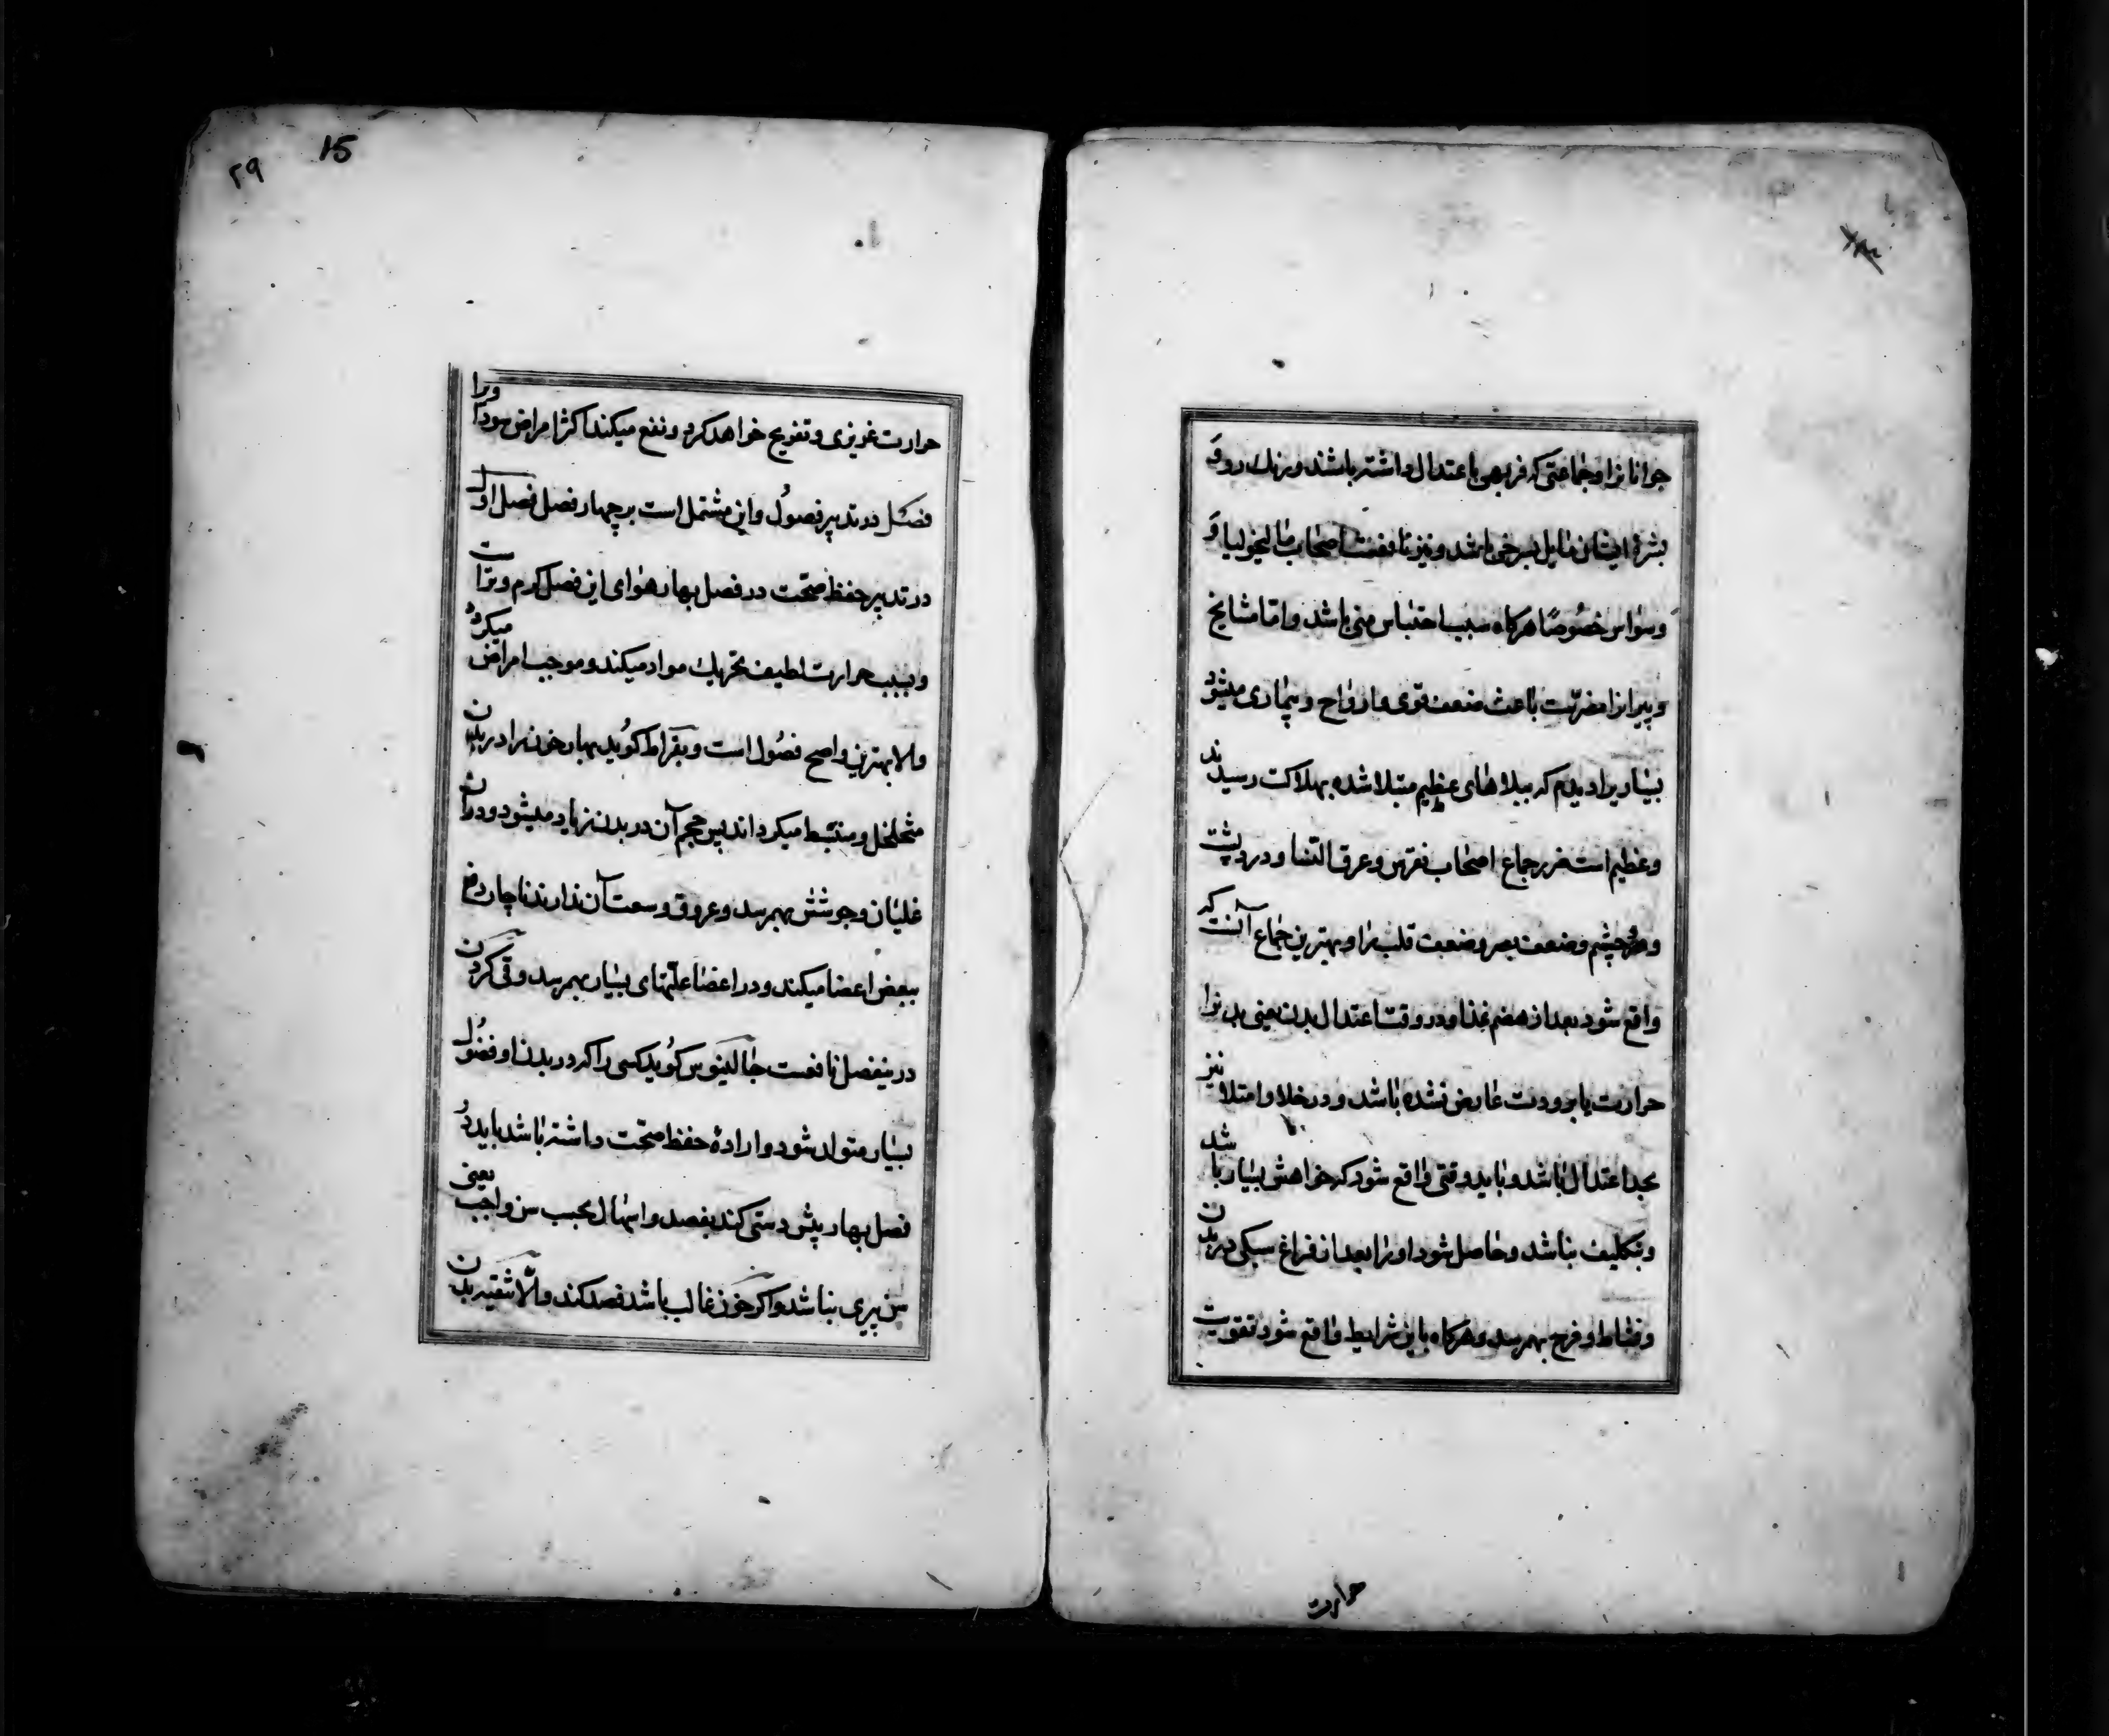 جوانانرا و جماعتی که فربهی باعتدال داشته باشند و رنك رو و
بشرهٔ ایشان مایل بسرخی باشد و نیز نافعست اصحاب مالیخولیا و
وسواس خصوصًا هرکاه سبب احتباس منی باشد و اما مشایخ
و پیرانرا مضرّت باعث ضعف قوی و ارواح و بیماری میشود
بسیار یرا دیدم که ببلاهای عظیم مبتلا شده بهلاکت رسیدند
و عظیم است ضرر جماع اصحاب نقرس و عرق النسا و درد پشت
و درد چشم و ضعف بصر و ضعف قلب را و بهترین جماع آنست که
واقع شود بعد از هضم غذا و در وقت اعتدال بدن یعنی بدنرا
حرارت یا برودت عارض نشده باشد و در خلا و امتلا نیز
بحد اعتدال باشد و باید وقتی واقع شود که خواهش بسیار باشد
و بتکلیف نباشد و حاصل شود او را بعد از فراغ سبکی در بدن
و نشاط و فرح بهم رسد و هرکاه باین شرایط واقع شود تقویت
حرارت
۲۹
15
حرارت غریزی و تفریح خواهد کرد و نفع میکند اکثر امراض سوداویرا
فصل در تدبیر فصول و این مشتمل است بر چهار فصل فصل اول
در تدبیر حفظ صحّت در فصل بهار هوای این فصل کرم و تر است
و بسبب حرارت لطیف تحریك مواد میکند و موجب امراض میکردد
و الا بهترین و اصح فصول است و بقراط کوید بهار خون را در بدن
متخلخل و منبسط میکرداند پس حجم آن در بدن زیاد میشود و در آن
غلیان و جوشش بهمرسد و عروق وسعت آن ندارند ناچار دفع
ببعض اعضا میکند و در اعضا علتهای بسیار بهمرسد و قی کردن
درینفصل نافعست جالینوس کوید کسی را که در بدن او فضول
بسیار متولد شود و ارادهٔ حفظ صحّت داشته باشد باید در
فصل بهار پیش دستی کند بفصد و اسهال بحسب سن واجب یعنی
سن پیری نباشد و اکر خون غالب باشد فصد کند و الّا تنقیه بدن